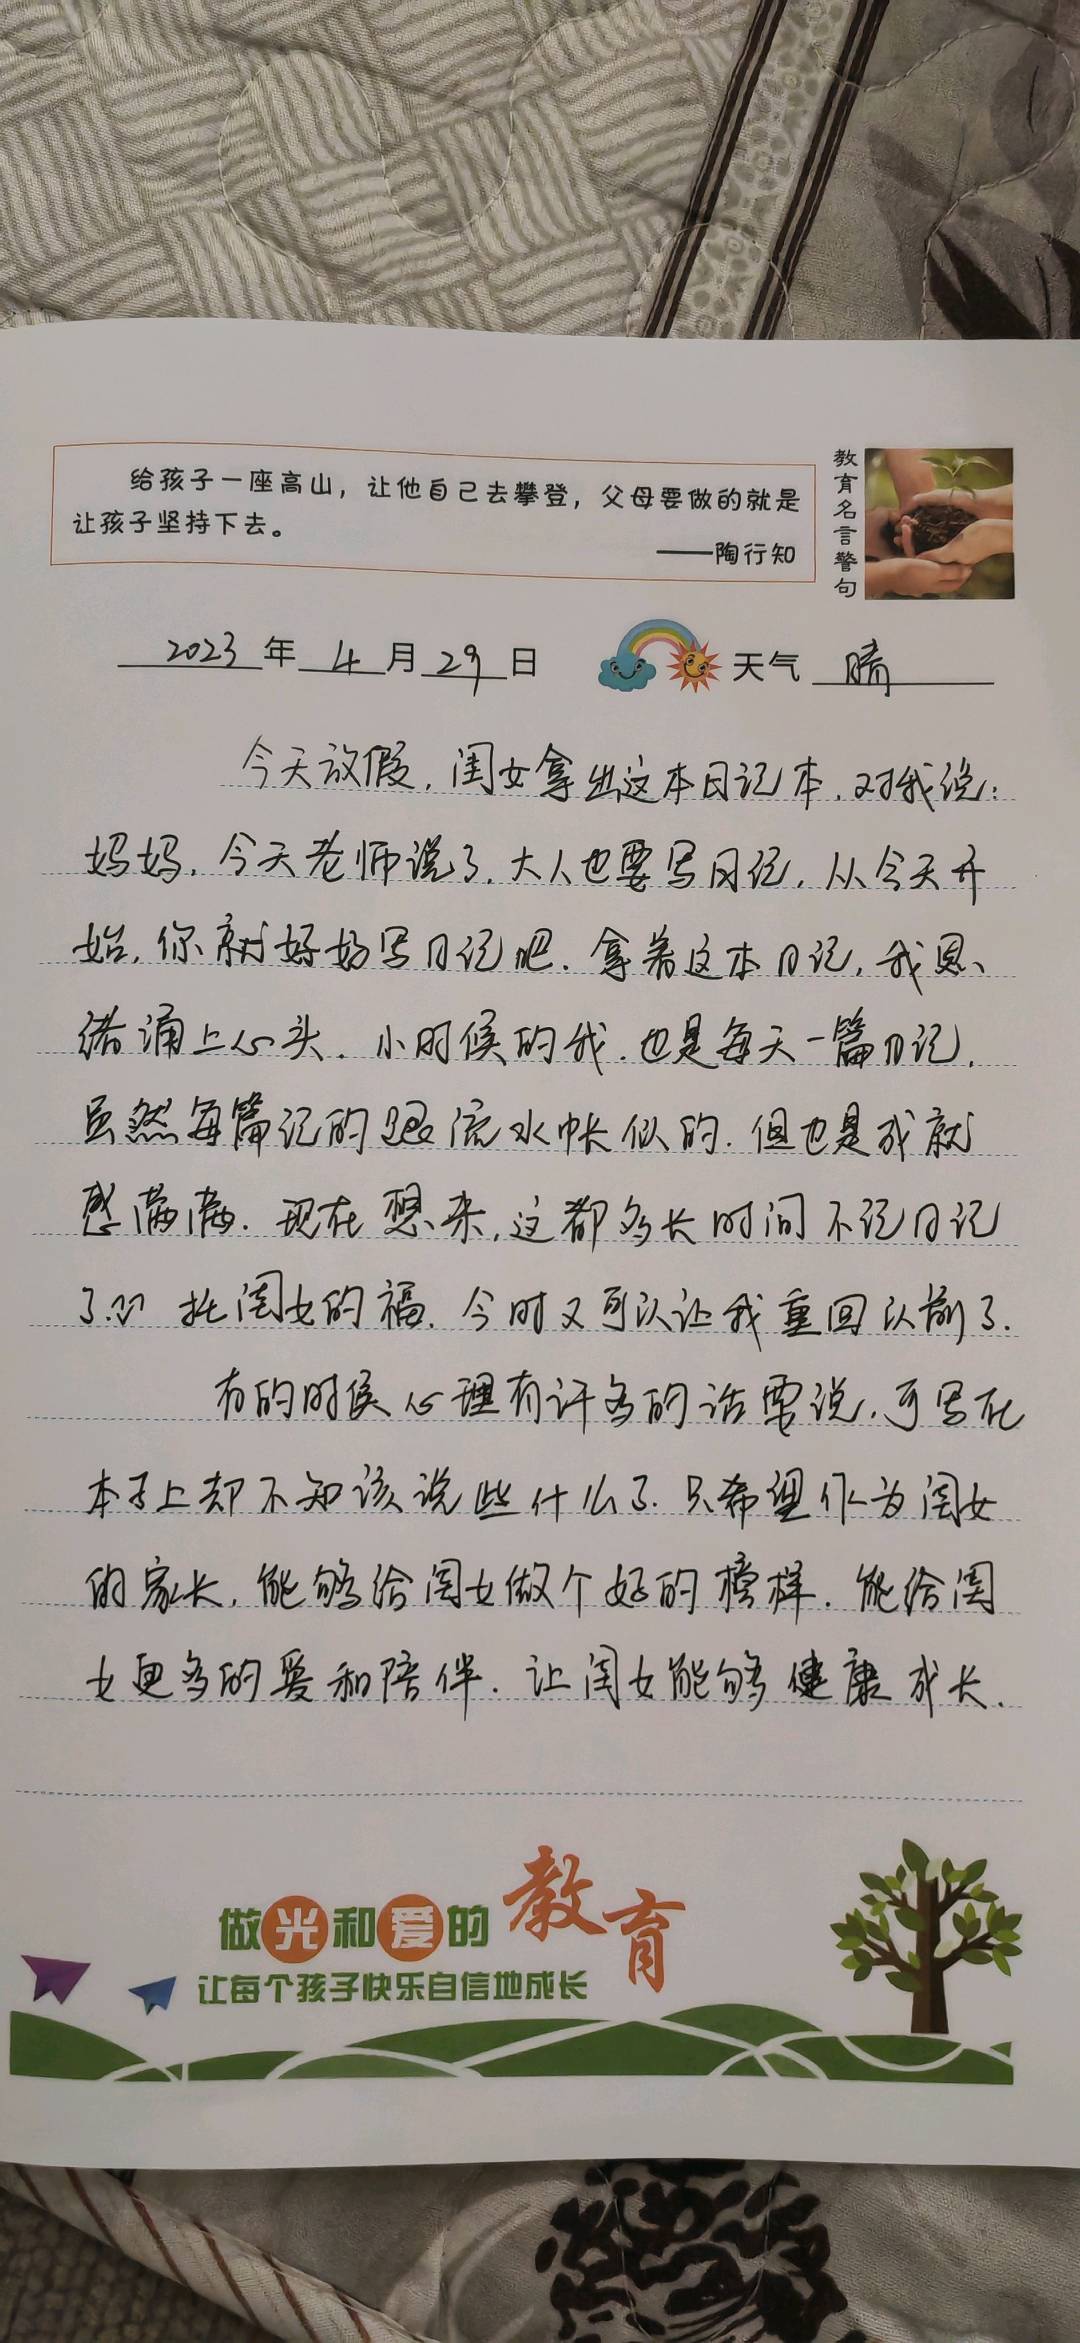 给孩子一座高山，让他自己去攀登，父母要做的就是
让孩子坚持下去。
——陶行知
教育名言警句
2023年4月29日 天气 晴
今天放假，闺女拿出这本日记本，对我说：
妈妈，今天老师说了，大人也要写日记，从今天开
始，你就好好写日记吧．拿着这本日记，我思
绪涌上心头．小时候的我．也是每天一篇日记，
虽然每篇记的跟流水帐似的．但也是成就
感满满．现在想来，这都多长时间不记日记
了.?? 托闺女的福．今时又可以让我重回以前了．
有的时候心理有许多的话要说，可写在
本子上却不知该说些什么了．只希望作为闺女
的家长，能够给闺女做个好的榜样．能给闺
女更多的爱和陪伴．让闺女能够健康成长．
做光和爱的教育
让每个孩子快乐自信地成长